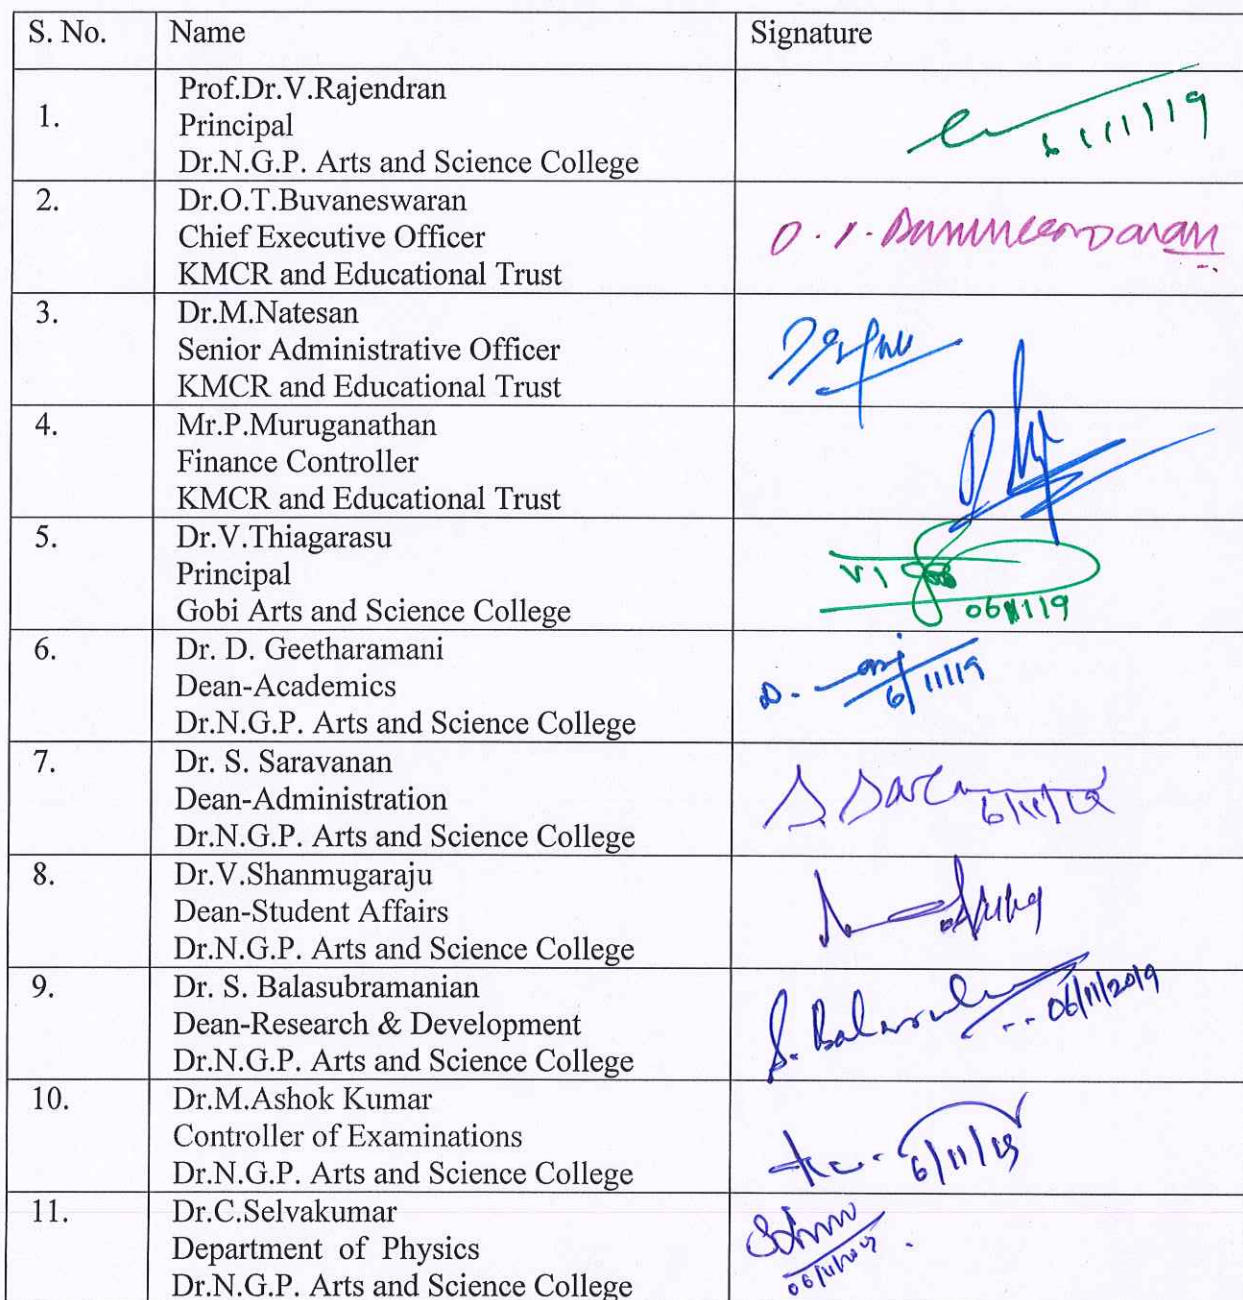 S. No. Name Signature
1. Prof.Dr.V.Rajendran
Principal
Dr.N.G.P. Arts and Science College
6/11/19
2. Dr.O.T.Buvaneswaran
Chief Executive Officer
KMCR and Educational Trust
3. Dr.M.Natesan
Senior Administrative Officer
KMCR and Educational Trust
4. Mr.P.Muruganathan
Finance Controller
KMCR and Educational Trust
5. Dr.V.Thiagarasu
Principal
Gobi Arts and Science College
06/11/19
6. Dr. D. Geetharamani
Dean-Academics
Dr.N.G.P. Arts and Science College
6/11/19
7. Dr. S. Saravanan
Dean-Administration
Dr.N.G.P. Arts and Science College
6/11/19
8. Dr.V.Shanmugaraju
Dean-Student Affairs
Dr.N.G.P. Arts and Science College
9. Dr. S. Balasubramanian
Dean-Research & Development
Dr.N.G.P. Arts and Science College
06/11/2019
10. Dr.M.Ashok Kumar
Controller of Examinations
Dr.N.G.P. Arts and Science College
6/11/19
11. Dr.C.Selvakumar
Department of Physics
Dr.N.G.P. Arts and Science College